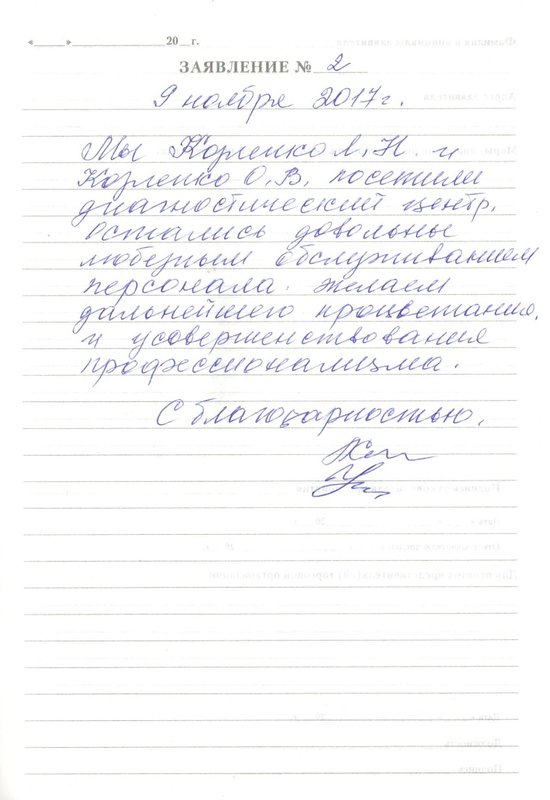 «____»______________20__г.
ЗАЯВЛЕНИЕ № 2
9 ноября 2017г.
Мы Козленко Л.Н. и
Козленко О.В. посетили
диагностический центр.
Остались довольны
любезным обслуживанием
персонала. Желаем
дальнейшего процветания,
и усовершенствования
профессионализма.
С благодарностью.